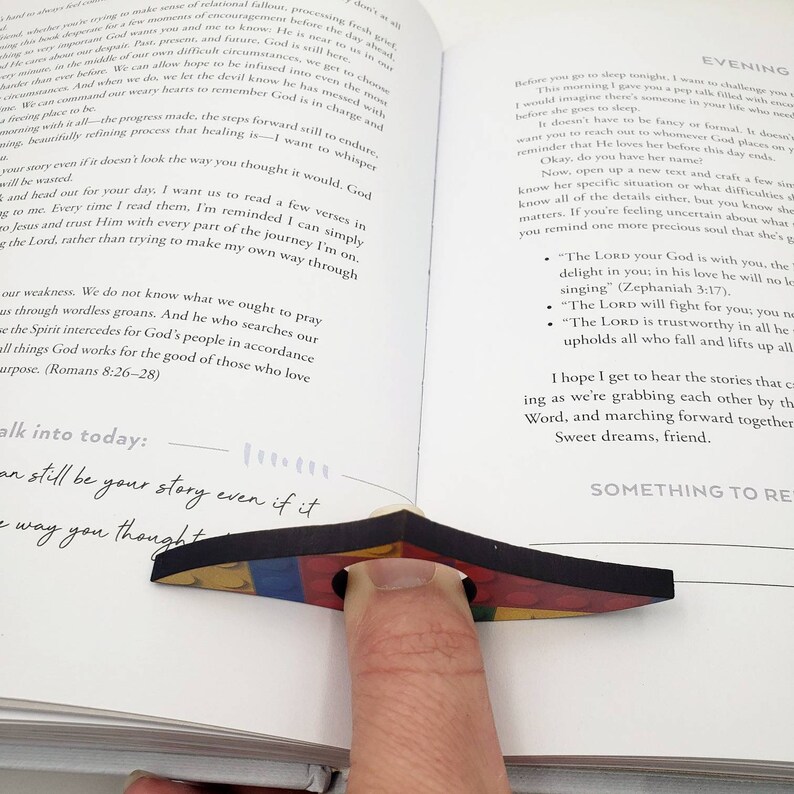 's hard to always feel
friend, whether you're trying to make sense of relational fallout, processing fresh grief,
ning this book desperate for a few moments of encouragement before the day ahead,
thing so very important God wants you and me to know: He is near to us in our
d He cares about our despair. Past, present, and future, God is still here.
very minute, in the middle of our own difficult circumstances, we get to choose
harder than ever before. We can allow hope to be infused into even the most
circumstances. And when we do, we let the devil know he has messed with
ime. We can command our weary hearts to remember God is in charge and
a freeing place to be.
morning with it all—the progress made, the steps forward still to endure,
ning, beautifully refining process that healing is—I want to whisper
u.
your story even if it doesn't look the way you thought it would. God
will be wasted.
k and head out for your day, I want us to read a few verses in
ng to me. Every time I read them, I'm reminded I can simply
to Jesus and trust Him with every part of the journey I'm on.
g the Lord, rather than trying to make my own way through
our weakness. We do not know what we ought to pray
us through wordless groans. And he who searches our
se the Spirit intercedes for God's people in accordance
all things God works for the good of those who love
urpose. (Romans 8:26–28)
alk into today:
an still be your story even if it
e way you thought
EVENING
Before you go to sleep tonight, I want to challenge you t
This morning I gave you a pep talk filled with enco
I would imagine there's someone in your life who need
before she goes to sleep.
It doesn't have to be fancy or formal. It doesn't
want you to reach out to whomever God places on y
reminder that He loves her before this day ends.
Okay, do you have her name?
Now, open up a new text and craft a few sim
know her specific situation or what difficulties sh
know all of the details either, but you know she
matters. If you're feeling uncertain about what
you remind one more precious soul that she's g
• "The LORD your God is with you, the
delight in you; in his love he will no lo
singing" (Zephaniah 3:17).
• "The LORD will fight for you; you n
• "The LORD is trustworthy in all he
upholds all who fall and lifts up all
I hope I get to hear the stories that c
ing as we're grabbing each other by th
Word, and marching forward together
Sweet dreams, friend.
SOMETHING TO RE